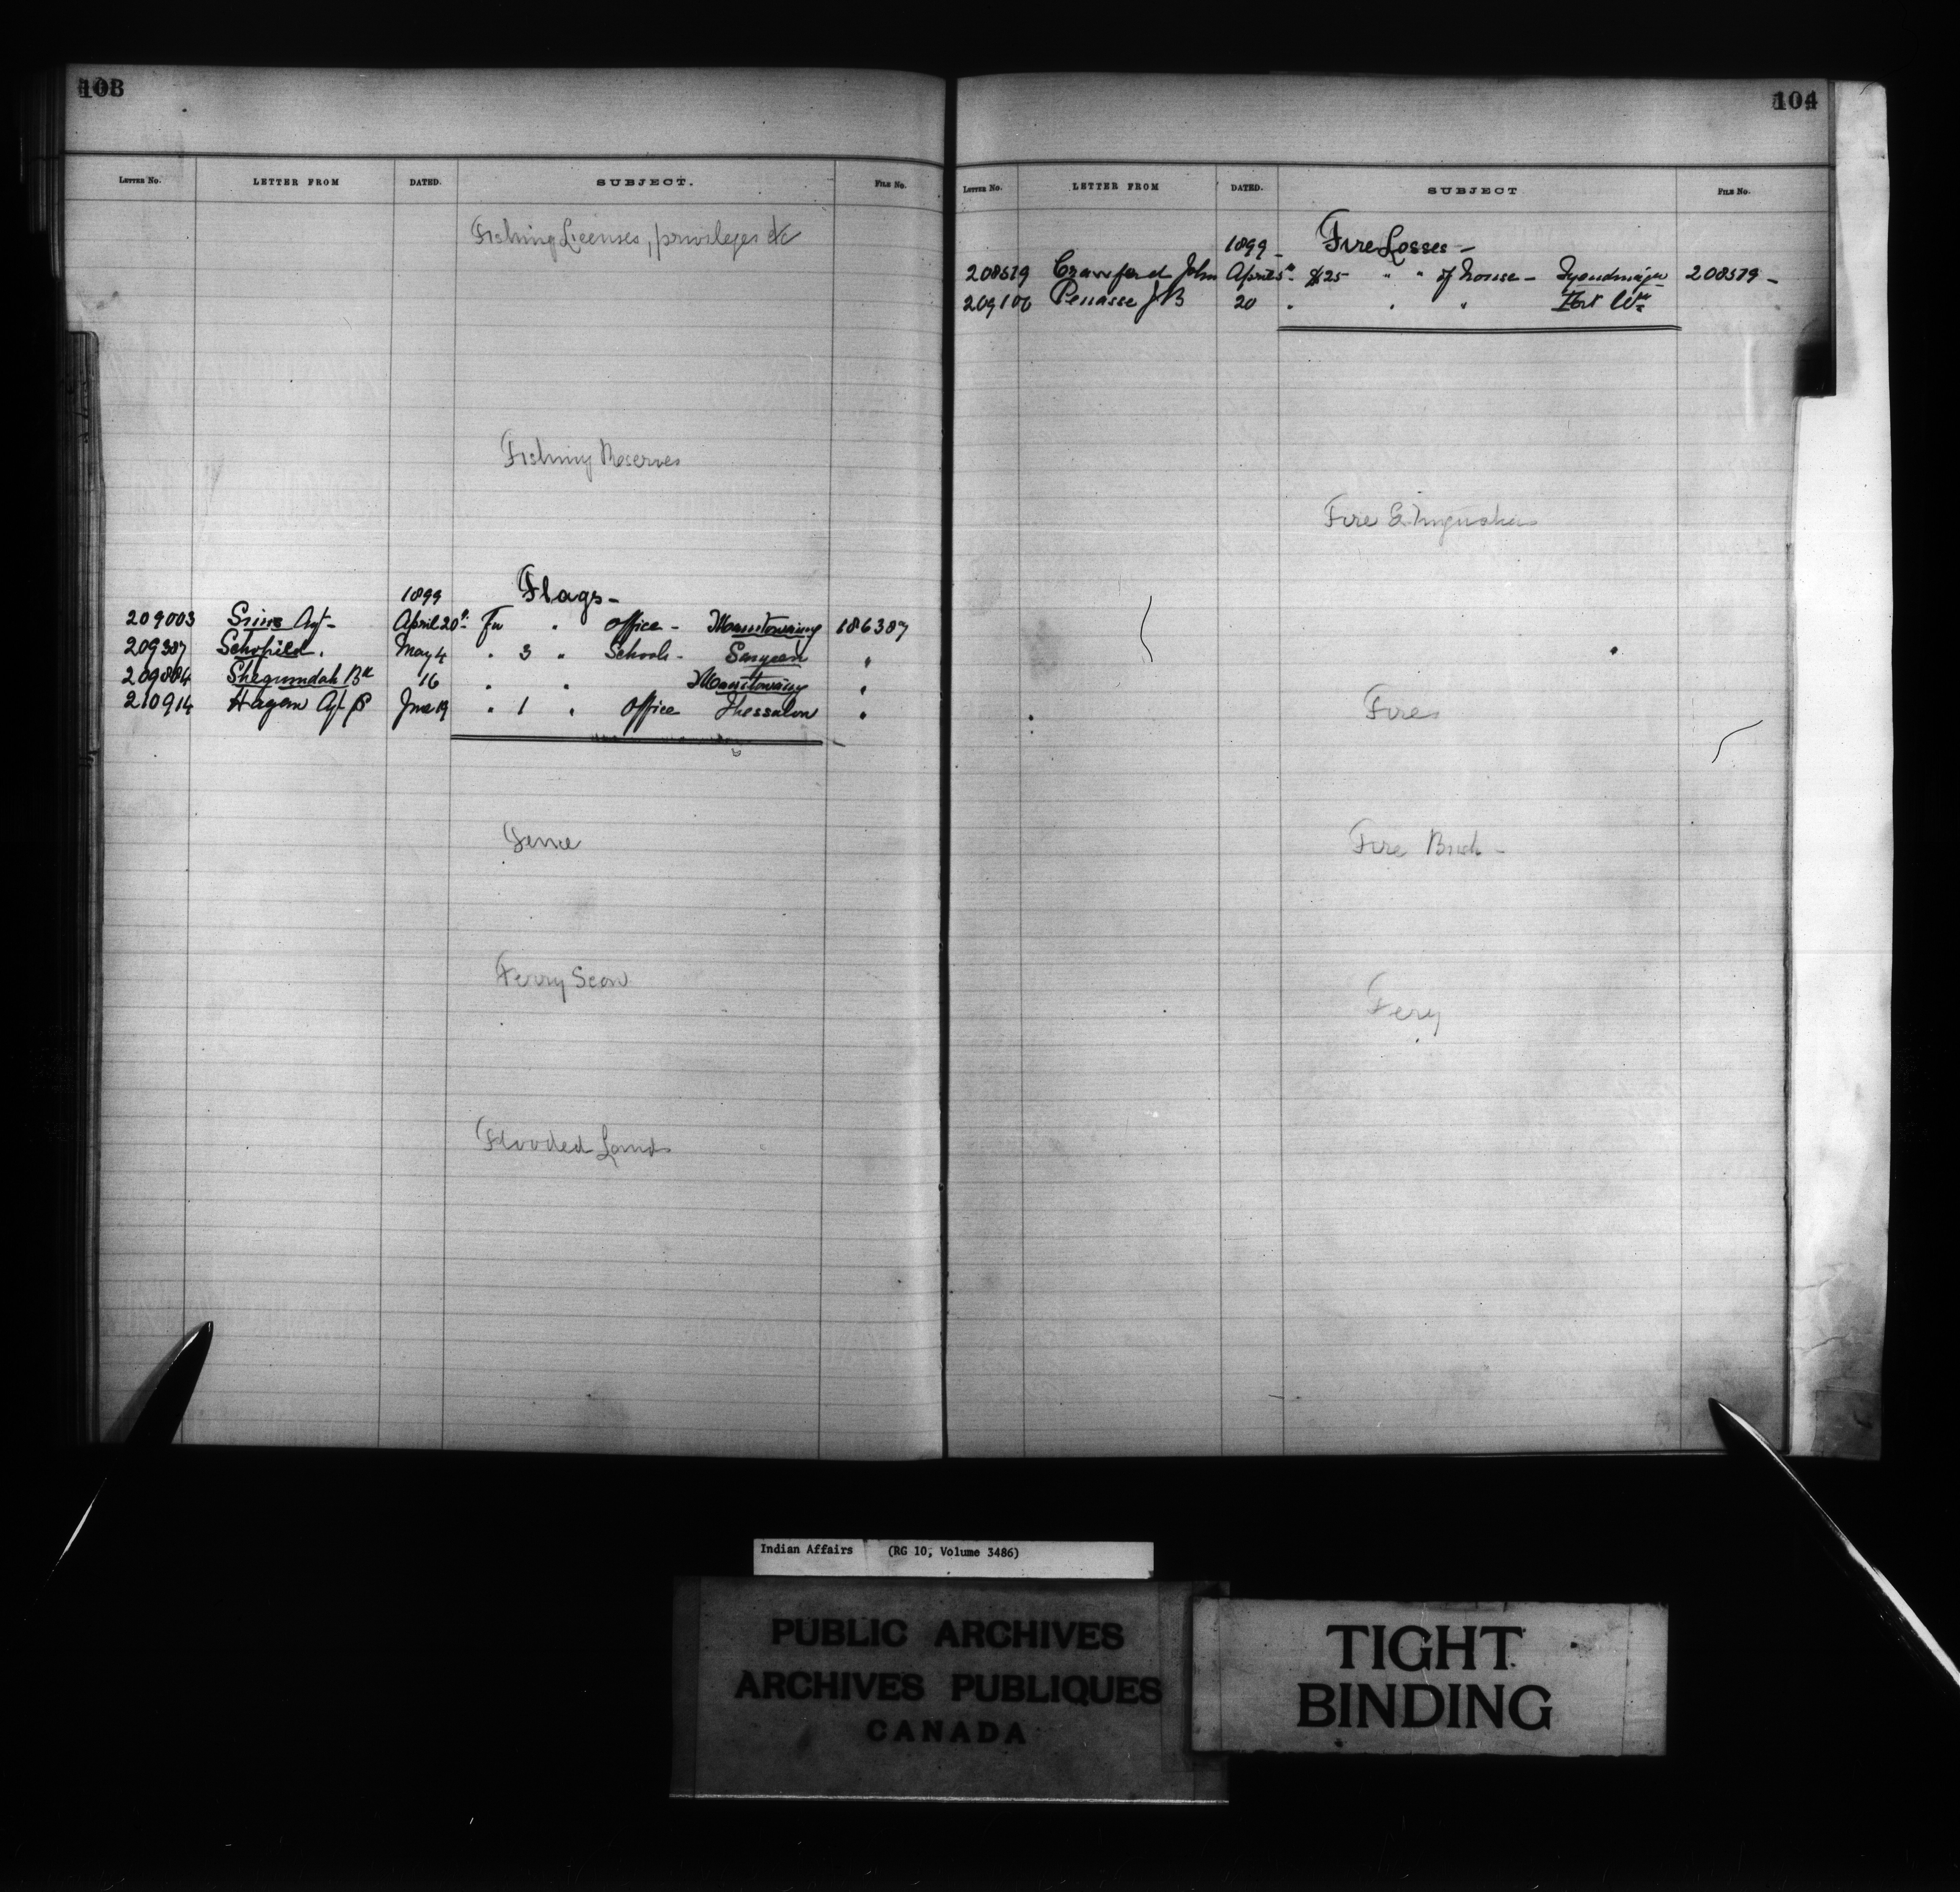 103
LETTER NO. LETTER FROM DATED. SUBJECT. FILE NO.
Fishing Licenses, privileges &c
Fishing Reserves
1899 Flags -
209003 Sims Agt - April 20 " Office - Manitowaning 186387
209387 Schofield . May 4 " 3 " Schools - "
209884 Sheguindah Bd 16 " " Manitowaning "
210914 Hagan Agt June 19 " 1 " Office Thessalon "
Ferry Scow
Flooded Lands
104
LETTER NO. LETTER FROM DATED. SUBJECT FILE NO.
1899 - Fire Losses -
208579 Crawford John April 5 - $25 " " of house - Tyendinaga 208579 -
209106 Penasse J B 20 " " " Fort Wm
Fire Extinguishers
Fires
Fire Bush -
Fery
Indian Affairs (RG 10, Volume 3486)
PUBLIC ARCHIVES
ARCHIVES PUBLIQUES
CANADA
TIGHT
BINDING